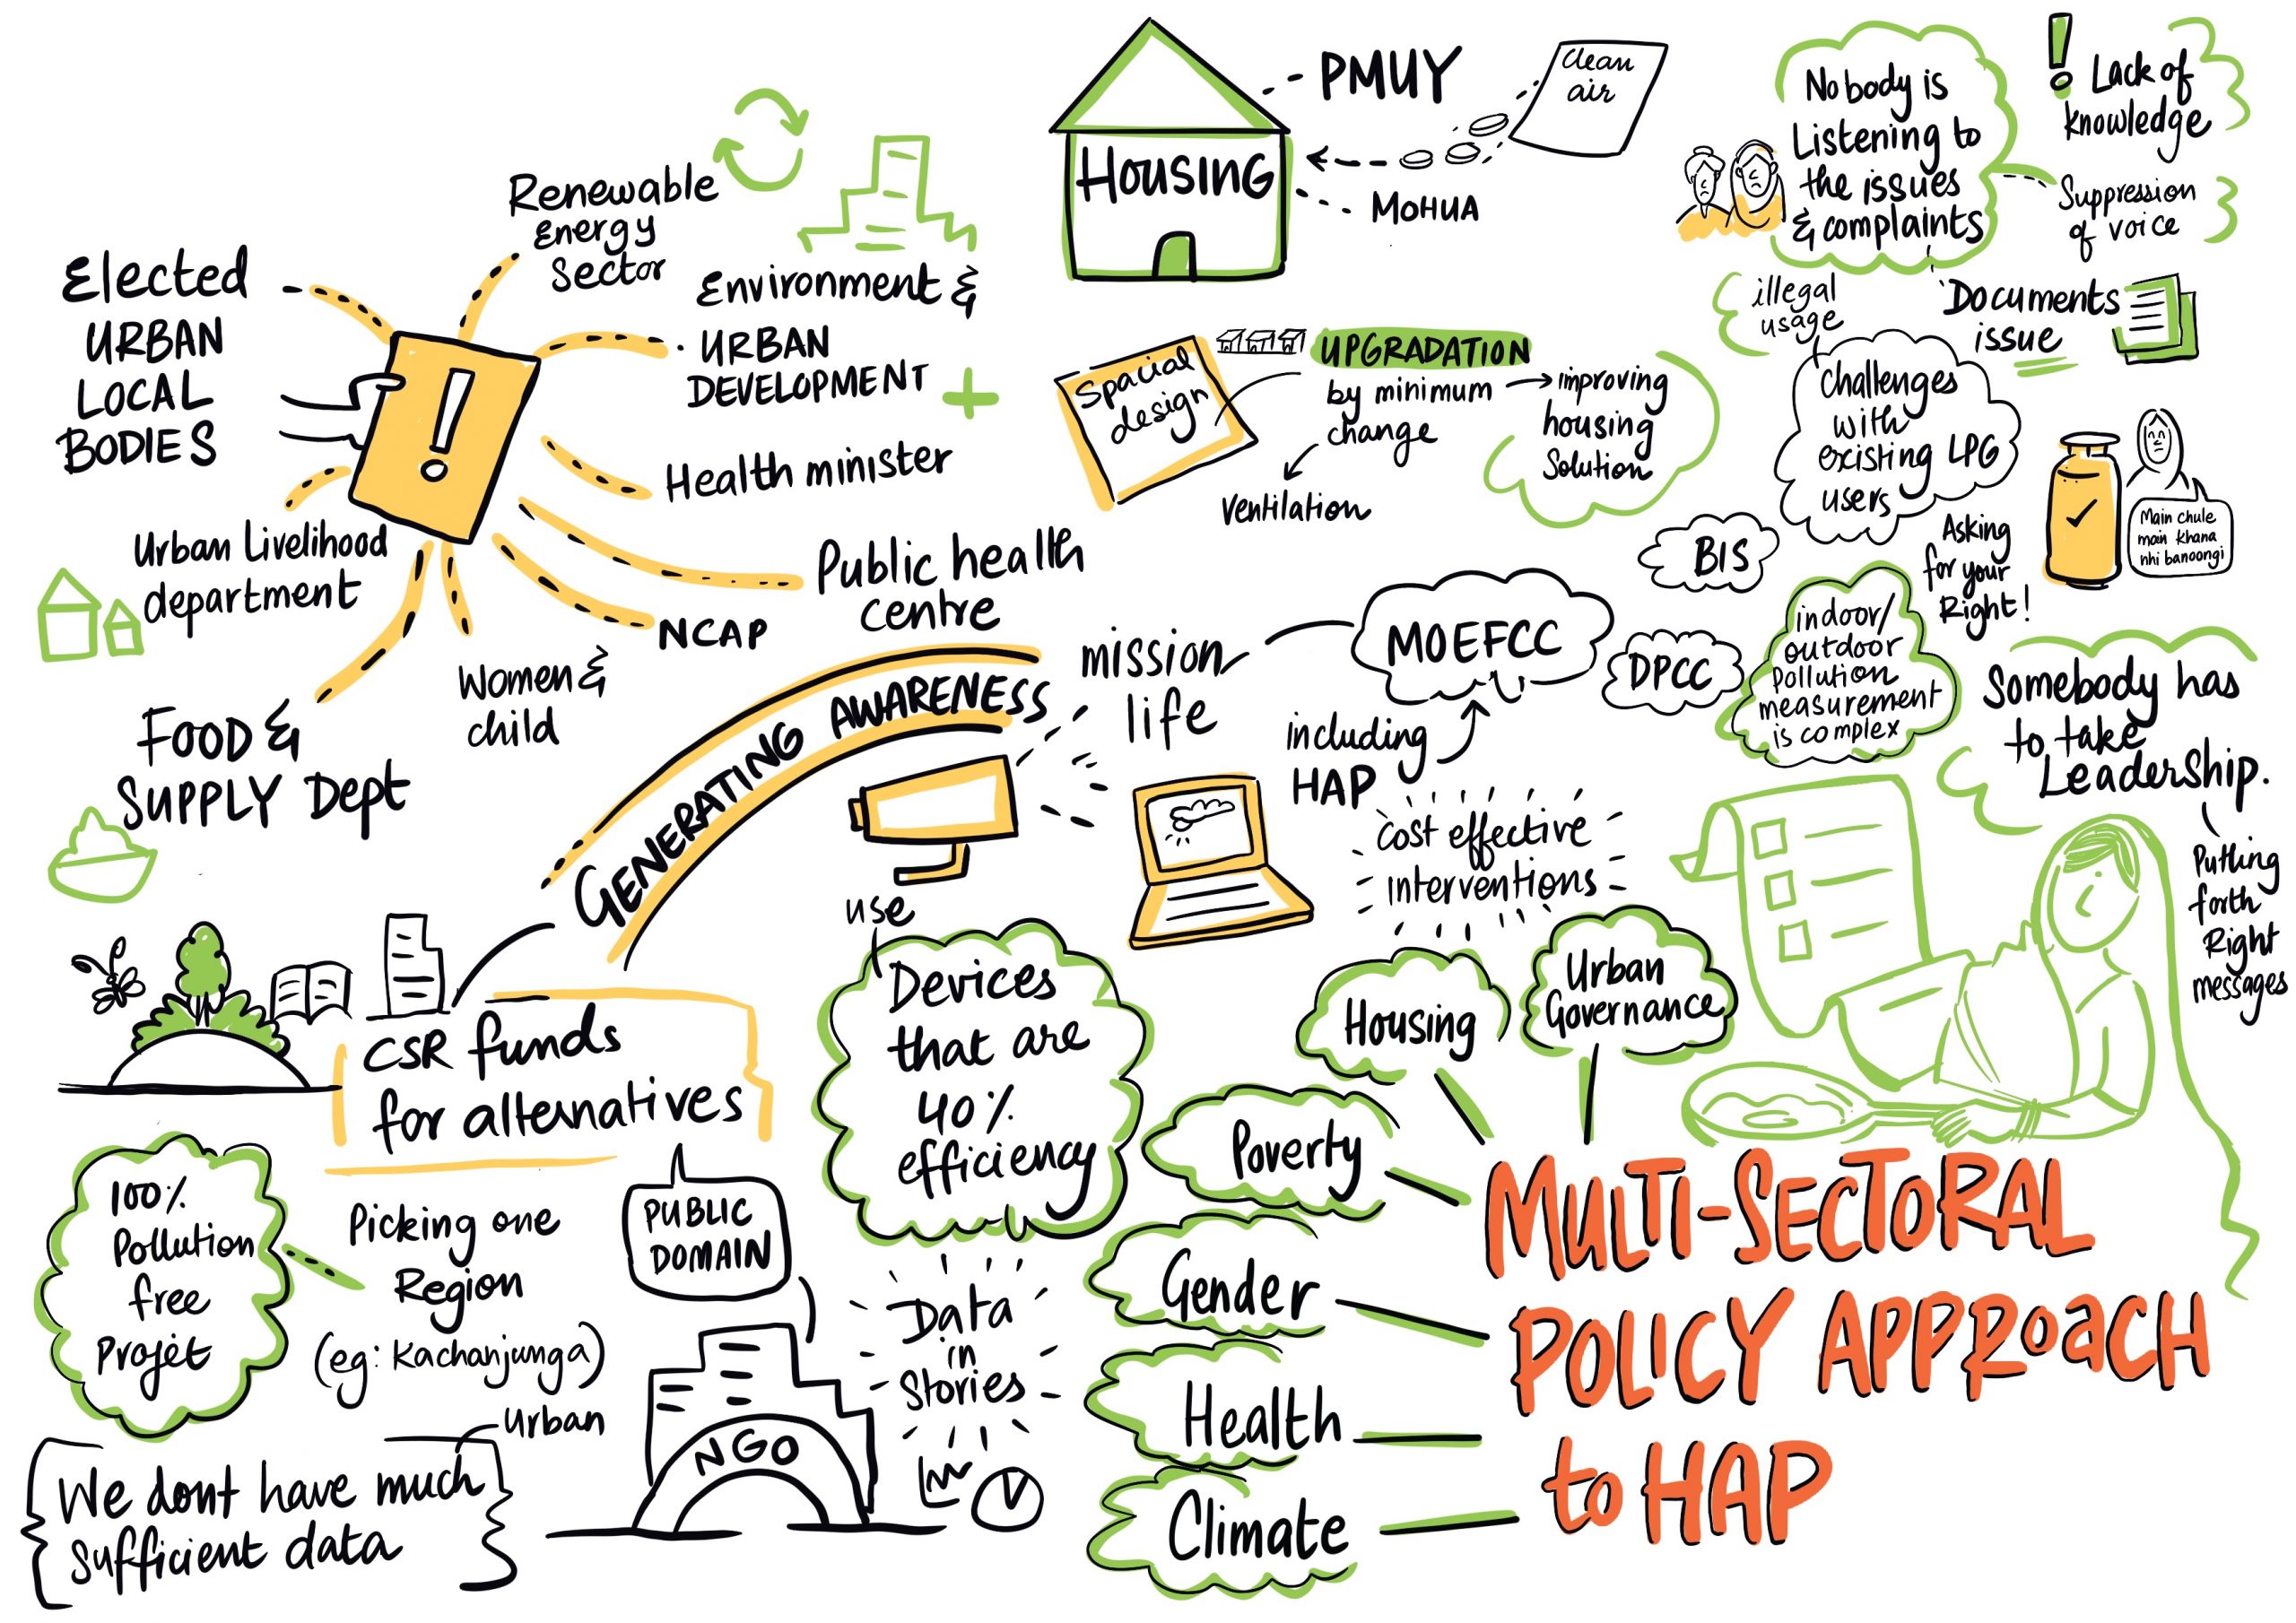 Elected
URBAN
LOCAL
BODIES
!
Renewable
Energy
Sector
Environment &
URBAN
DEVELOPMENT
Health minister
Public health
centre
NCAP
Women &
child
Urban Livelihood
department
FOOD &
SUPPLY Dept
HOUSING
PMUY
MOHUA
clean
air
Spacial
design
UPGRADATION
by minimum
change
improving
housing
Solution
Ventilation
Nobody is
Listening to
the issues
& complaints
! Lack of
knowledge
Suppression
of voice
illegal
usage
Documents
issue
Challenges
with
existing LPG
users
Main chule
main khana
nhi banoongi
Asking
for your
Right!
BIS
DPCC
indoor/
outdoor
pollution
measurement
is complex
MOEFCC
mission
life
including
HAP
GENERATING AWARENESS
Cost effective
interventions
Somebody has
to take
Leadership.
Putting
forth
Right
messages
CSR funds
for alternatives
use
Devices
that are
40%
efficiency
100%
Pollution
free
Projet
Picking one
Region
(eg: Kachanjunga)
Urban
We dont have much
sufficient data
PUBLIC
DOMAIN
NGO
Data
in
Stories
Housing
Urban
Governance
Poverty
Gender
Health
Climate
MULTI-SECTORAL
POLICY APPROACH
to HAP